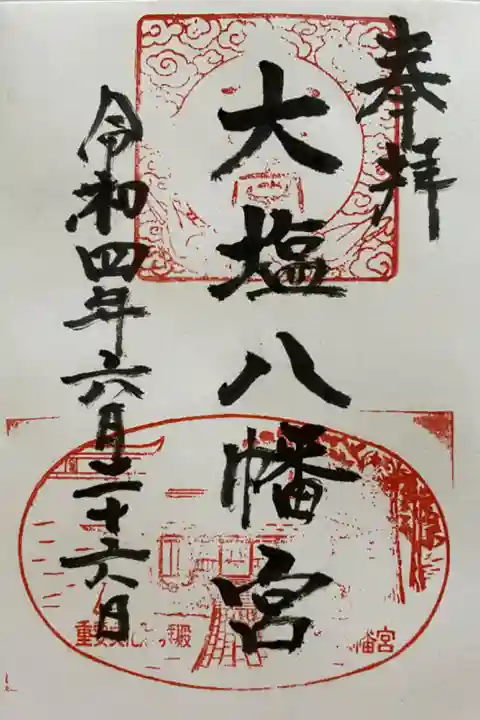 奉拝
大塩八幡宮
令和四年六月二十六日
重要文化
殿
幡宮